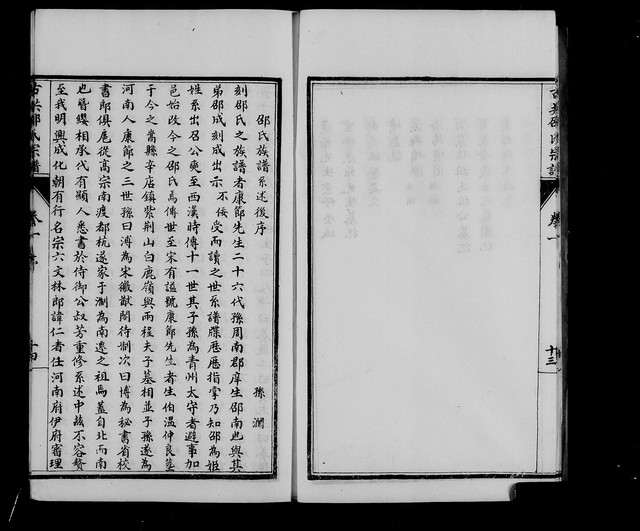 古共邵氏宗譜
卷一
十三
邵氏族譜系述後序
孫瀾
刻邵氏之族譜者康節先生二十六代孫周南郡庠生邵南也與其
弟邵成刻成出示不佞受而讀之世系譜牒歷歷指掌乃知邵為姬
姓系出召公奭至西漢時傳十一世其子孫為青州太守者避事加
邑始改今之邵氏焉傳世至宋有謚號康節先生者生伯溫仲良塟
于今之嵩縣辛店鎮紫荆山白鹿嶺與兩程夫子墓相並子孫遂為
河南人康節之三世孫曰溥為宋徽猷閣待制次曰博為秘書省校
書郎俱扈從高宗南渡都杭遂家于浙為南遷之祖焉蓋自北而南
也曆纘相承代有顯人悉書於侍御公叔芳重修系述中茲不容贅
至我明興成化朝有行名宗六文林郎諱仁者仕河南府伊府審理
古共邵氏宗譜
卷一序
十四